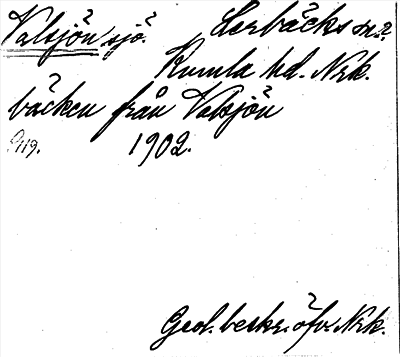 Valsjön sjö. Lerbäcks sn.
Kumla hd. Nrk.
bäcken från Valsjön
119. 1902.
Geol. beskr. öfv. Nrk.